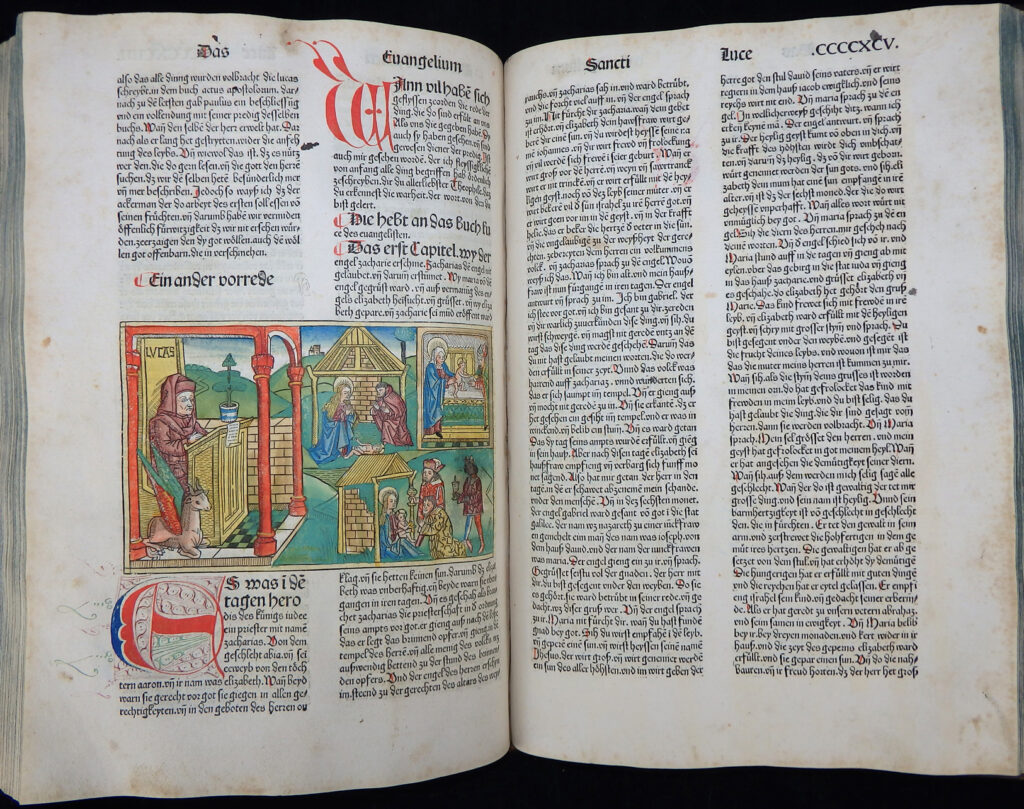 Das
Euangelium
also das alle ding wurden volbracht. die lucas
schreybt. in dem buch actus apostolorum. dar-
nach zů dē lesten gab paulus ein beschliessūg
vnd ein volkendung mit seiner predig desselben
buchs. Wañ den selbē der herr erwelt hat. Da
nach als er lang het gestrytten. wider die anfech
nung des leybs. Vñ wiewol das ist. dz es nütz
wer den. die do gern lesen. die got den herrē
suchen. dz wir dē selben herrē besunderlich mer
vnd mer beschriben. Jedoch so ways ich dz der
ackerman der do arbeyt des ersten soll essen vō
seinen früchten. vñ darumb habē wir vermiden
öffenlich fürwitzigkeit dz wir nit ersehen wür-
den. zeerzaigen den dy got wöllen. auch dē wöl
len got offenbarn. die in verschmehen.
Ein ander vorrede
Wann vil habē sich
geflyssen zeorden die rede der
ding. die do sind erfült an vns
Als vns die gegeben habē. Dy
auch sy haben gesehen. vñ sind
gewesen diener der predig. Ist
auch mir gesehen worden. der ich fleyssigkliche
von anfang alle ding begriffen hab ordenlich
zeschreyben. dir du allerliebster Theophyle. das
du erkennest die warheit. der wort. von den du
bist gelert.
Die hebt an das Buch lu
ce des euangelisten.
Das erst Capitel. wy der
engel zacharie erschine. Zacharias dē engel nit
gelaubet. vñ darum erstumet. Wy maria vō dē
engel gegrüst ward. vñ auf vermanung des en-
gels elizabeth heysucht. vñ wy eliza
beth gepare. vñ zacharie sei mūd eröffent ward
LVCAS
ES was i dē
tagen hero
dis des künigs iudee
ein priester mit namē
zacharias. Von dem
geschlecht abia. vñ sei
eeweyb von den töch
tern aaron. vñ ir nam was elizabeth. Wañ beyd
warn sie gerecht vor got sie giegen in allen ge-
rechtigkeyten. vñ in den geboten des herren on
klag. vñ sie hetten keinen sun. darumb dz eliza
beth was vnberhaftig. vñ beyde warn sie vergangen
in iren tagen. Vñ es geschah als brau
chet zacharias die priesterschaft in d ordnung
seins ampts vor got. er gieng auf nach dē
das er legt das brinnend opfer. vñ gieng in dē
tempel des herrē. vñ alle menig des volks wz
außwendig bettend zu der stund des brinnen-
den opfers. Vnd der engel des herren erschin
im. steend zu der gerechten des altars des wey
Sancti
Luce
.CCCCXCV.
rauchs. vñ zacharias sah in. vnd ward betrübt.
vnd die forcht viel auff in. vñ der engel sprach
zu im. Nit fürcht dir zacharia. wañ dein gebet
ist erhört. vñ elizabeth dein haussfraw wirt ge-
berē dir eine sun. vñ du wirdest heyssen seine na
mē iohannes. vñ dir wirt freud vñ frolockung
vñ vil werdē sich frewē i seier geburt. Wañ er
wirt groß vor dē herrē. vñ weyn vñ sawrtranck
wirt er nit trincke. vñ er wirt erfüllt mit dē hey-
ligen geyst. noch vō des leyb seiner můter. vñ er
wirt bekerē vil d sun israhel zu irē herrē got. vñ
er wirt geen vor im in dē geyst. vñ in der krafft
helie. das er beker die hertzē d veter in die sun.
vñ die engelaubigē zu der weyßheyt der gerech
ten. zebereyten dem herren ein volkummens
volck. vñ zacharias sprach zu dē engel. Wouō
weyß ich das. Wañ ich bin alt. vnd mein hauß
fraw ist nun fürgangē in iren tagen. Der engel
antwurt vñ sprach zu im. Ich bin gabriel. der
ich stee vor got. vñ ich bin gesant zu dir. zereden
vñ dir warlich zuuerkünden dise ding. vñ sih. du
wirst schweygē. vñ magst nit geredē vntz an dē
tag das dise ding werdē geschehē. Darum das
du nit hast gelaubt meinen worten. die do wer-
den erfüllt in seiner zeyt. Vnnd das volck was
harrend auff zachariaz. vnnd wunderten sich.
das er sich saumpt im tempel. Vñ er gieng auß
vñ mocht nit geredē zu in. Vñ sie erkantē. dz er
het gesehen ein gesiht im tempel. vnd er was in
wencken. vñ belib ein stum. Vñ es ward getan
Das dy tag seins ampts wurdē erfült. vñ gieng
in sein hauß. Aber nach disen tagē elizabeth sei
haußfraw empfieng vñ verbarg sich fünff mo-
net sagend. Also hat mir getan der herr in den
tagē. in dē er schawet abzenemē mein schande.
vnder den menschē. Vñ in dez sechsten monet.
der engel gabriel ward gesant vō got i die stat
galilee. der nam wz nazareth zu einer iunckfraw
en gemehelt eim mañ des nam was ioseph. von
dem hauß dauid. vnd der nam der iunckfrawen
was maria. Der engel gieng ein zu ir. vñ sprach.
Gegrüsset seistu vol der gnaden. der herr mit
dir. du bist gesegent vnder den weyben. Do sie
des gehört. sie ward betrübt in seiner rede. vñ ge
dacht. wz diser gruß wer. Vñ der engel sprach
zu ir. Maria nit fürcht dir. wañ du hast funden
gnad bey got. Sih du wirst empfahē i dē leyb.
vñ gepere eine sun. vñ wirst heyssen seine namē
Jhesus. der wirt groß. vñ wirt genennet werdē
ein sun des aller höhsten. vnd im wirt geben der
herre got den stul dauid seins vaters. vñ er wirt
regiern in dem hauß iacob ewigklich. vnd seins
reychs wirt nit end. Vñ maria sprach zu dē en-
gel. In wellicherweyß geschiht ditz. wañ ich
erken keynē mā. Der engel antwurt. vñ sprach
zu ir. Der heylig geyst kumt vō oben in dich. vñ
die krafft des höhsten wirdt dich vmbschat-
ten. vñ darum dz heylig. dz vō dir wirt geborn.
würt genennet werden der sun gots. vnd sih. eli
zabeth dein mum hat eine sun empfange in irē
alter. vnd ist der sechst moned. der die do wirt
geheysse vnperhafft. Wañ alles wort würt nit
vnmüglich bey got. Vñ maria sprach zu dē en
gel. Sih die diern des herren. mir gescheh nach
deinē worten. Vñ d engel schied sich vō ir. vnd
Maria stund auff in dē tagen vñ gieng ab mit
eylen. vber das gebirg in die stat iuda vñ gieng
in das hauß zacharie. vnd grüsset elizabeth vñ
es geschahe. do elizabeth het gehört den gruß
Marie. Das kind frewet sich mit frewde in irē
leyb. vñ elizabeth ward erfüllt mit dē heyligen
geyst. vñ schry mit grosser stym vnd sprach. Du
bist gesegent vnder den weybē. vnd gesegēt ist
die frucht deines leybs. vnd wouon ist mir das
das die muter meins herren ist kummen zu mir.
Wañ sih. als die stym deins gruses ist worden
in meinen orn. do hat gefrolocket das kind mit
frewden in mein leyb. vnd du bist selig. das du
hast gelaubt die ding. die dir sind gesagt vom
herzen. dann sie werden volbracht. Vñ Maria
sprach. Mein sel grösset den herren. vnd mein
geyst hat gefrolocket in got meinem heyl. Wañ
er hat angesehen die demütigkeyt seiner diern.
Wañ sih. auß dem werden mich selig sagē alle
geschlecht. Wañ der do ist gewaltig der tet mir
grosse ding. vnd sein nam ist heylig. Vnnd sein
barmhertzigkeyt ist vō geschlecht in geschlecht
den. die in fürchten. Er tet den gewalt in sein
arm. vnd zerstrewet die hohfertigen in dem ge
müt ires hertzen. Die gewaltigen hat er ab ge
setzet von dem stul. vñ hat erhöht dy demütigē
Die hungerigen hat er erfült mit guten dingē
vnd die reychen hat er eytel gelassen. Er empf-
eng israhel sein kind. vñ gedacht seiner erbermb-
de. Als er hat geredt zu vnsern vetern abraham
vnd seinen samen in ewigkeyt. Vñ Maria belib
bey ir. bey dreyen monaden. vnd kert wider in ir
hauß. vnd die zeyt des gepeins elizabeth ward
erfüllt. vnd sie gepar einen sun. Vñ do die nah-
bauren. vñ ir freud horten. dz der herr het groß